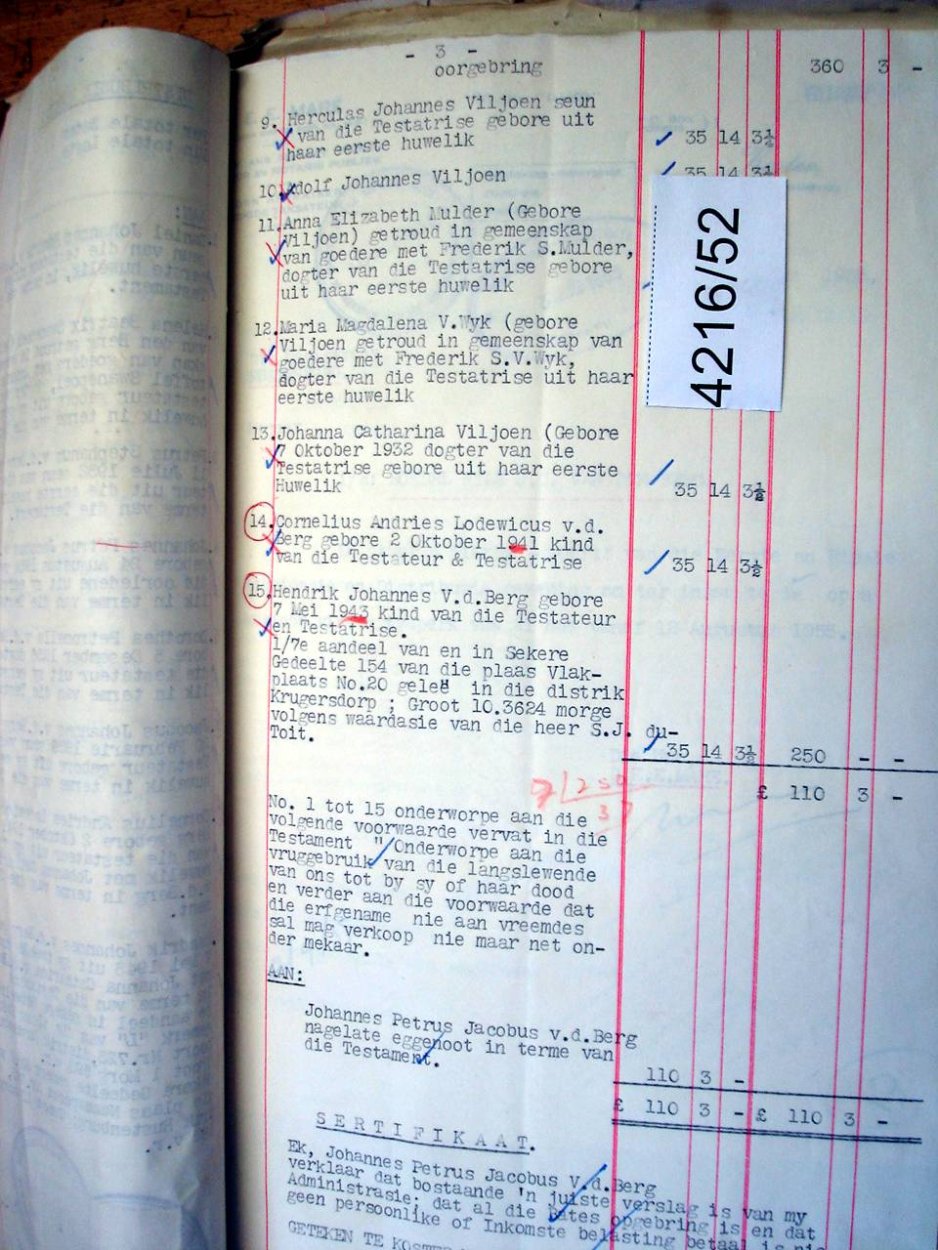 - 3 -
oorgebring 360 3 -
9. Herculas Johannes Viljoen seun
van die Testatrise gebore uit
haar eerste huwelik 35 14 3½
10. Adolf Johannes Viljoen 35 14 3½
11. Anna Elizabeth Mulder (Gebore
Viljoen) getroud in gemeenskap
van goedere met Frederik S.Mulder,
dogter van die Testatrise gebore
uit haar eerste huwelik
4216/52
12. Maria Magdalena V.Wyk (gebore
Viljoen getroud in gemeenskap van
goedere met Frederik S.V.Wyk,
dogter van die Testatrise uit haar
eerste huwelik
13. Johanna Catharina Viljoen (Gebore
7 Oktober 1932 dogter van die
Testatrise gebore uit haar eerste
Huwelik 35 14 3½
14. Cornelius Andries Lodewicus v.d.
Berg gebore 2 Oktober 1941 kind
van die Testateur & Testatrise 35 14 3½
15. Hendrik Johannes V.d.Berg gebore
7 Mei 1943 kind van die Testateur
en Testatrise.
1/7e aandeel van en in Sekere
Gedeelte 154 van die plaas Vlak-
plaats No.20 geleë in die distrik
Krugersdorp ; Groot 10.3624 morge
volgens waardasie van die heer S.J. du-
Toit. 35 14 3½ 250 - -
£ 110 3 -
7 250
3
No. 1 tot 15 onderworpe aan die
volgende voorwaarde vervat in die
Testament " Onderworpe aan die
vruggebruik van die langslewende
van ons tot by sy of haar dood
en verder aan die voorwaarde dat
die erfgename nie aan vreemdes
sal mag verkoop nie maar net on-
der mekaar.
AAN:
Johannes Petrus Jacobus v.d.Berg
nagelate eggenoot in terme van
die Testament.
110 3 -
£ 110 3 - £ 110 3 -
SERTIFIKAAT.
Ek, Johannes Petrus Jacobus v.d.Berg
verklaar dat bostaande 'n juiste verslag is van my
Administrasie; dat al die Bates opgebring is en dat
geen persoonlike of Inkomste belasting betaal is
GETEKEN TE